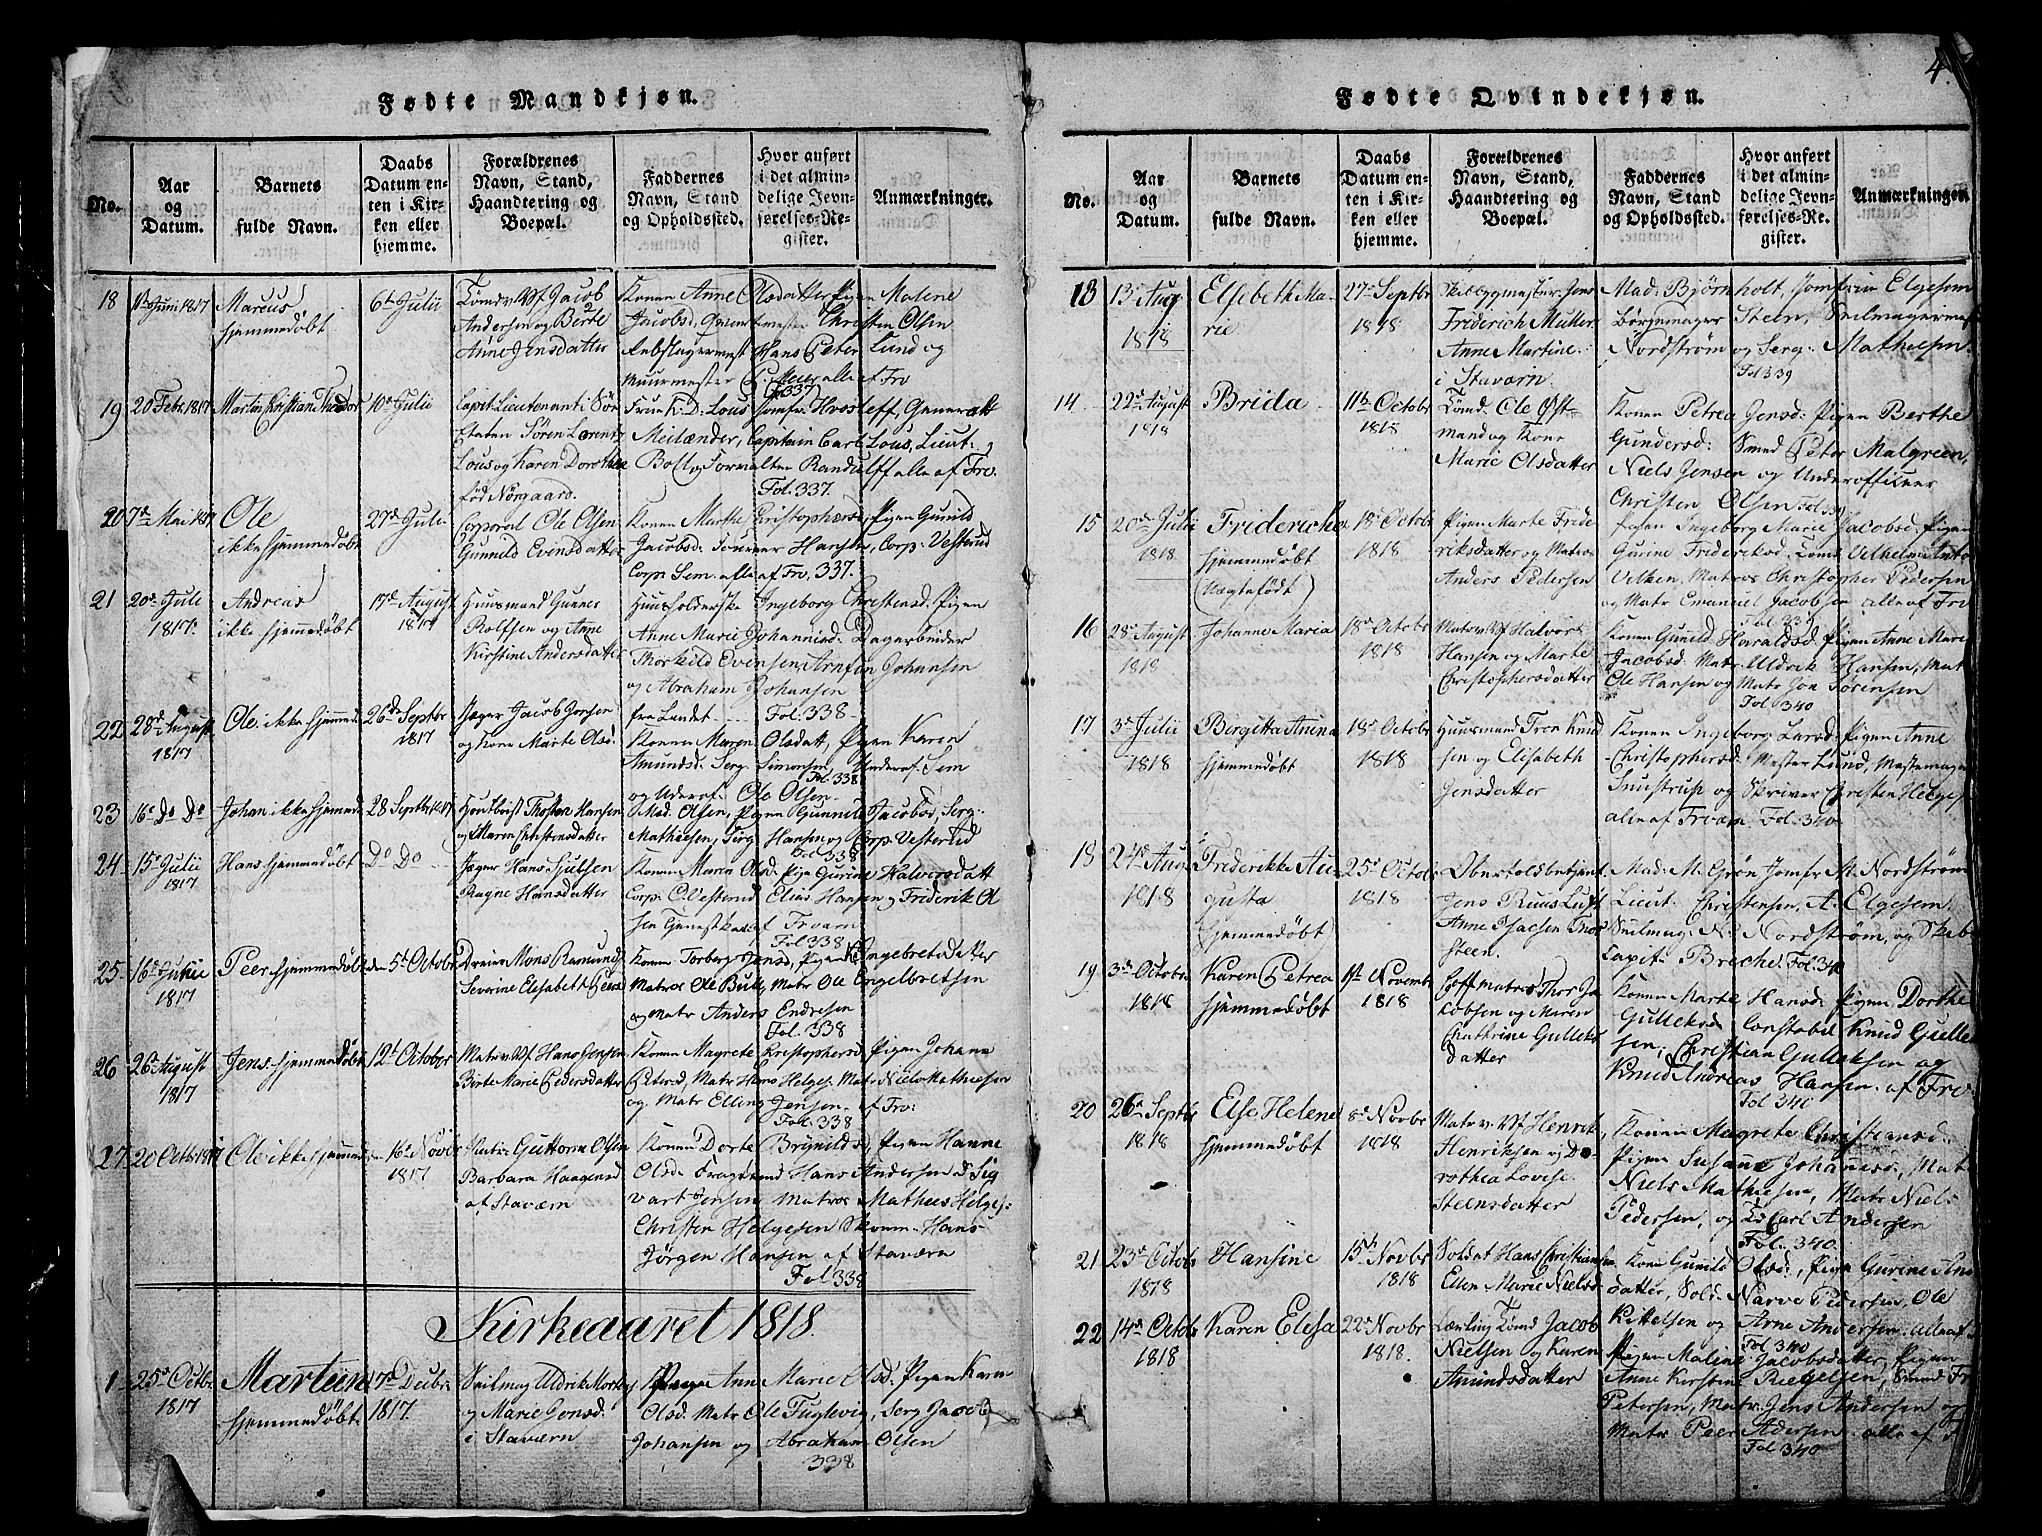 4
Fødte Mandkjøn.
No.
Aar og Datum.
Barnets fulde Navn.
Daabs Datum enten i Kirken eller hjemme.
Forældrenes Navn, Stand, Haandtering og Boepæl.
Faddernes Navn, Stand og Opholdssted.
Hvor anført i det almindelige Jevnførelses-Register.
Anmærkninger.
18 Juni 1817 Marcus hjemmedøbt 6te Julii
Jacob Andersen og Berte Anne Jensdatter
Konen Anne Olsdatter Pigen Malene
Jacobsd, Christen Olsen
Hans Peter Lund og
Muurmester alle af Frv
Fol 337
19 20 Febr. 1817 Martin Christian Theodor 10de Julii
Capit: Lieutenant i Søe Etaten Sören Lorentz Lous og Karen Dorothea fød Nørgaard.
Frue K: D: Lous Jomfr Generalt
Meilænder, Capitain Carl Lous, Lieut:
Boll og Formalter Randulff alle af Frv.
Fol. 337.
20 7de Mai 1817 Ole ikke hjemmedøbt 27de Julii
Corporal Ole Olsen Gunnild Evinsdatter
Konen Marthe Christophersd, Pigen Gunild
Jacobsd: Hansen, Corp: Vesterud
Corp Sem. alle af Frv, 337.
21 20de Julii 1817. Andreas ikke hjemmedøbt 17de August 1817
Huusmand Gunner Rolfsen og Anne Kirstine Andersdatter
Huusholderske Ingeborg Christensd. Pigen
Anne Marie Johannisd: Dagarbeider
Thorkild Evensen, Arnfen Johansen
og Abraham Johansen
fra Landet Fol. 338
22 28de August 1817 Ole ikke hjemmed 26de Septbr 1817
Jæger Jacob Jonsen og Kone Marte Olsd.
Konen Maren Olsdatt, Pigen Karen
Amundsd. Serg. Simonsen, Underof. Sem
og Underof. Ole Olsen. Fol. 338
23 16de Do Do Johan ikke hjemmed 28 Septbr 1817
Thosten Hansen og Maren Christensdatter
Mad. Olsen, Pigen Gunnild Jacobsd, Serg:
Mathiesen, Serg Hansen og Corp: Vesterud
Fol 338
24 15de Julii 1817 Hans hjemmedøbt Do Do
Jæger Hans Ragne Hansdatter
Konen Maria Olsd. Pige Gurine Halversdatt
Corp: C. Vesterud Elias Hansen og Friderik Ol
sen af Frværn
Fol. 338
25 16de Julii 1817 Peer hjemmedøbt den 5te October
Mons Severine Elisabeth Peersd
Konen Torberg Jensd, Pigen K. Ingebretsdatter
Matros Ole Bull, Matr Ole Engelbretsen
og Matr Anders Endresen
Fol. 338
26 26de August 1817 Jens hjemmedøbt 12te October
Matr. v. Vf Hans Jensen Birte Marie Pedersdatter
Konen Magrete Christophersd Pigen Johane
Petersd, Matr Hans Helges. Matr Niels Mathiesen
og Matr Elling Jensen af Frv:
Fol. 338
27 20 Octbr 1817 Ole ikke hjemmed 16de Novbr 1817
Matros Guttorm Olsen Barbara Haagensd af Staværn
Konen Dorte Brynilds, Pigen Hanne
Olsd Hans Andersen
Jensen Matros Mathies Helges:
Christen Helgesen Hans
Jørgen Hansen af Staværn
Fol 338
Kirkeaaret 1818.
1 25de Octbr 1817 Martiin hjemmedøbt 7de Decbr: 1817.
Seilmag Uldrik og Marie Jensd: i Staværn
Pigen Ann Marie Olsd. Pigen Karen
Olsd. Matr Ole Fuglevig, Serg Jacob
Johansen og Abraham Olsen
338
Fødte Qvindekjøn.
No.
Aar og Datum.
Barnets fulde Navn.
Daabs Datum enten i Kirken eller hjemme.
Forældrenes Navn, Stand, Haandtering og Boepæl.
Faddernes Navn, Stand og Opholdssted.
Hvor anført i det almindelige Jevnførelses-Register.
Anmærkninger.
13 13de Aug 1818 Elsebeth Marie 27de Septbr 1818
Skibbygmester Jens Friderich Müller Anne Martine i Staværn.
Mad: Bjørnholt, Jomfrue Elgesem
Steen, Seilmagermest
Nordstrøm og Serg: Mathesen.
Fol 339
14 22de August 1818 Brida 11te Octobr 1818
Tömd: Ole Østmand og Kone Marie Olsdatter
Konen Petrea Jensd: Pigen Berthe
Gundersd: Smed Peter Malgreen,
Niels Jensen og Underofficeer
Christen Olsen Fol 339
15 20de Julii 1818 Fridericha hjemmedøbt (Uægtefødt) 18de Octobr 1818
Pigen Marte Frideriksdatter og Matros Anders Pedersen
Pigen Ingeborg Marie Jacobsd, Pigen
Gurine Frideriksd, Tömd Velhelm Anto
Velken, Matros Christopher Pedersen
og Matr Emanuel Jacobsen alle af Frv
Fol 339
16 28de August 1818 Johanne Maria 18de Octobr 1818
Matr. v. Vf Halvor Hansen og Marte Christophersdatter
Konen Gunild Haraldsd, Pigen Anne Marie
Jacobsd: Matr Uldrik Hansen, Mat
Ole Hansen og Matr Jon Sørensen
Fol 340
17 3de Julii 1818 Bergitta Anina hjemmedøbt 18de Octobr 1818
Huusmand Tron Knudsen og Elisabeth Jensdatter
Konen Ingeborg Larsd: Pigen Anne
Christophersd: Mester Lund, Mestermager
Snustrup og Skriver Christen Helges
alle af Frværn. Fol: 340
18 24de Aug 1818 Frederikke Augusta hjemmedøbt 25de Octobr 1818
Overtoldbetjent Jens Ruus Anne Isacsen Steen.
Mad: M: Grøn Jomfr M. Nordstrøm
Lieut: Christensen, A. Elgesem
Seilmag: N: Nordstrøm, og Skibs
Capit: Breche. Fol: 340
19 3de Octobr 1818 Karen Petrea hjemmedøbt 1ste Novembr 1818
matros Thor Jacobsen og Maren Cathrine Gulleksdatter
Konen Marte Hansd. Pigen Dorthe
Gulleksd Constabel Knud Gulle
sen, Christian Gulleksen og
Knud Andreas Hansen. af Frv.
Fol 340
20 26de Septbr 1818 Else Helene hjemmedøbt 8de Novbr 1818
Matr v. Vf Henrik Henriksen og Dorothea Lovise Steensdatter
Konen Magrete Christiansd.
Pigen Susane Johanesd, Mat
Niels Mathiesen, Matr Niels
Pedersen, og Carl Andersen
Fol: 340.
21 23de Octobr 1818 Hansine 15de Novbr 1818
Soldat Hans Christiansen Ellen Marie Nielsd
Konen Gunild Olsd:, Pigen Gurine
datter, Sold. Narve Pedersen, Ole
Kittelsen og Arne Andersen. alle af
Fol 340
22 14de Octobr 1818 Karen Elisa 22de Novbr 1818.
Lærling Tömd Jacob Nielsen og Karen Amundsdatter
Pigen Maline Jacobsdatter, Pigen
Anne Kirstine Riegelsen, Smed
Petersen, Matr. Jens Andersen og
Matr Peer Adersen. alle af F
Fol 340